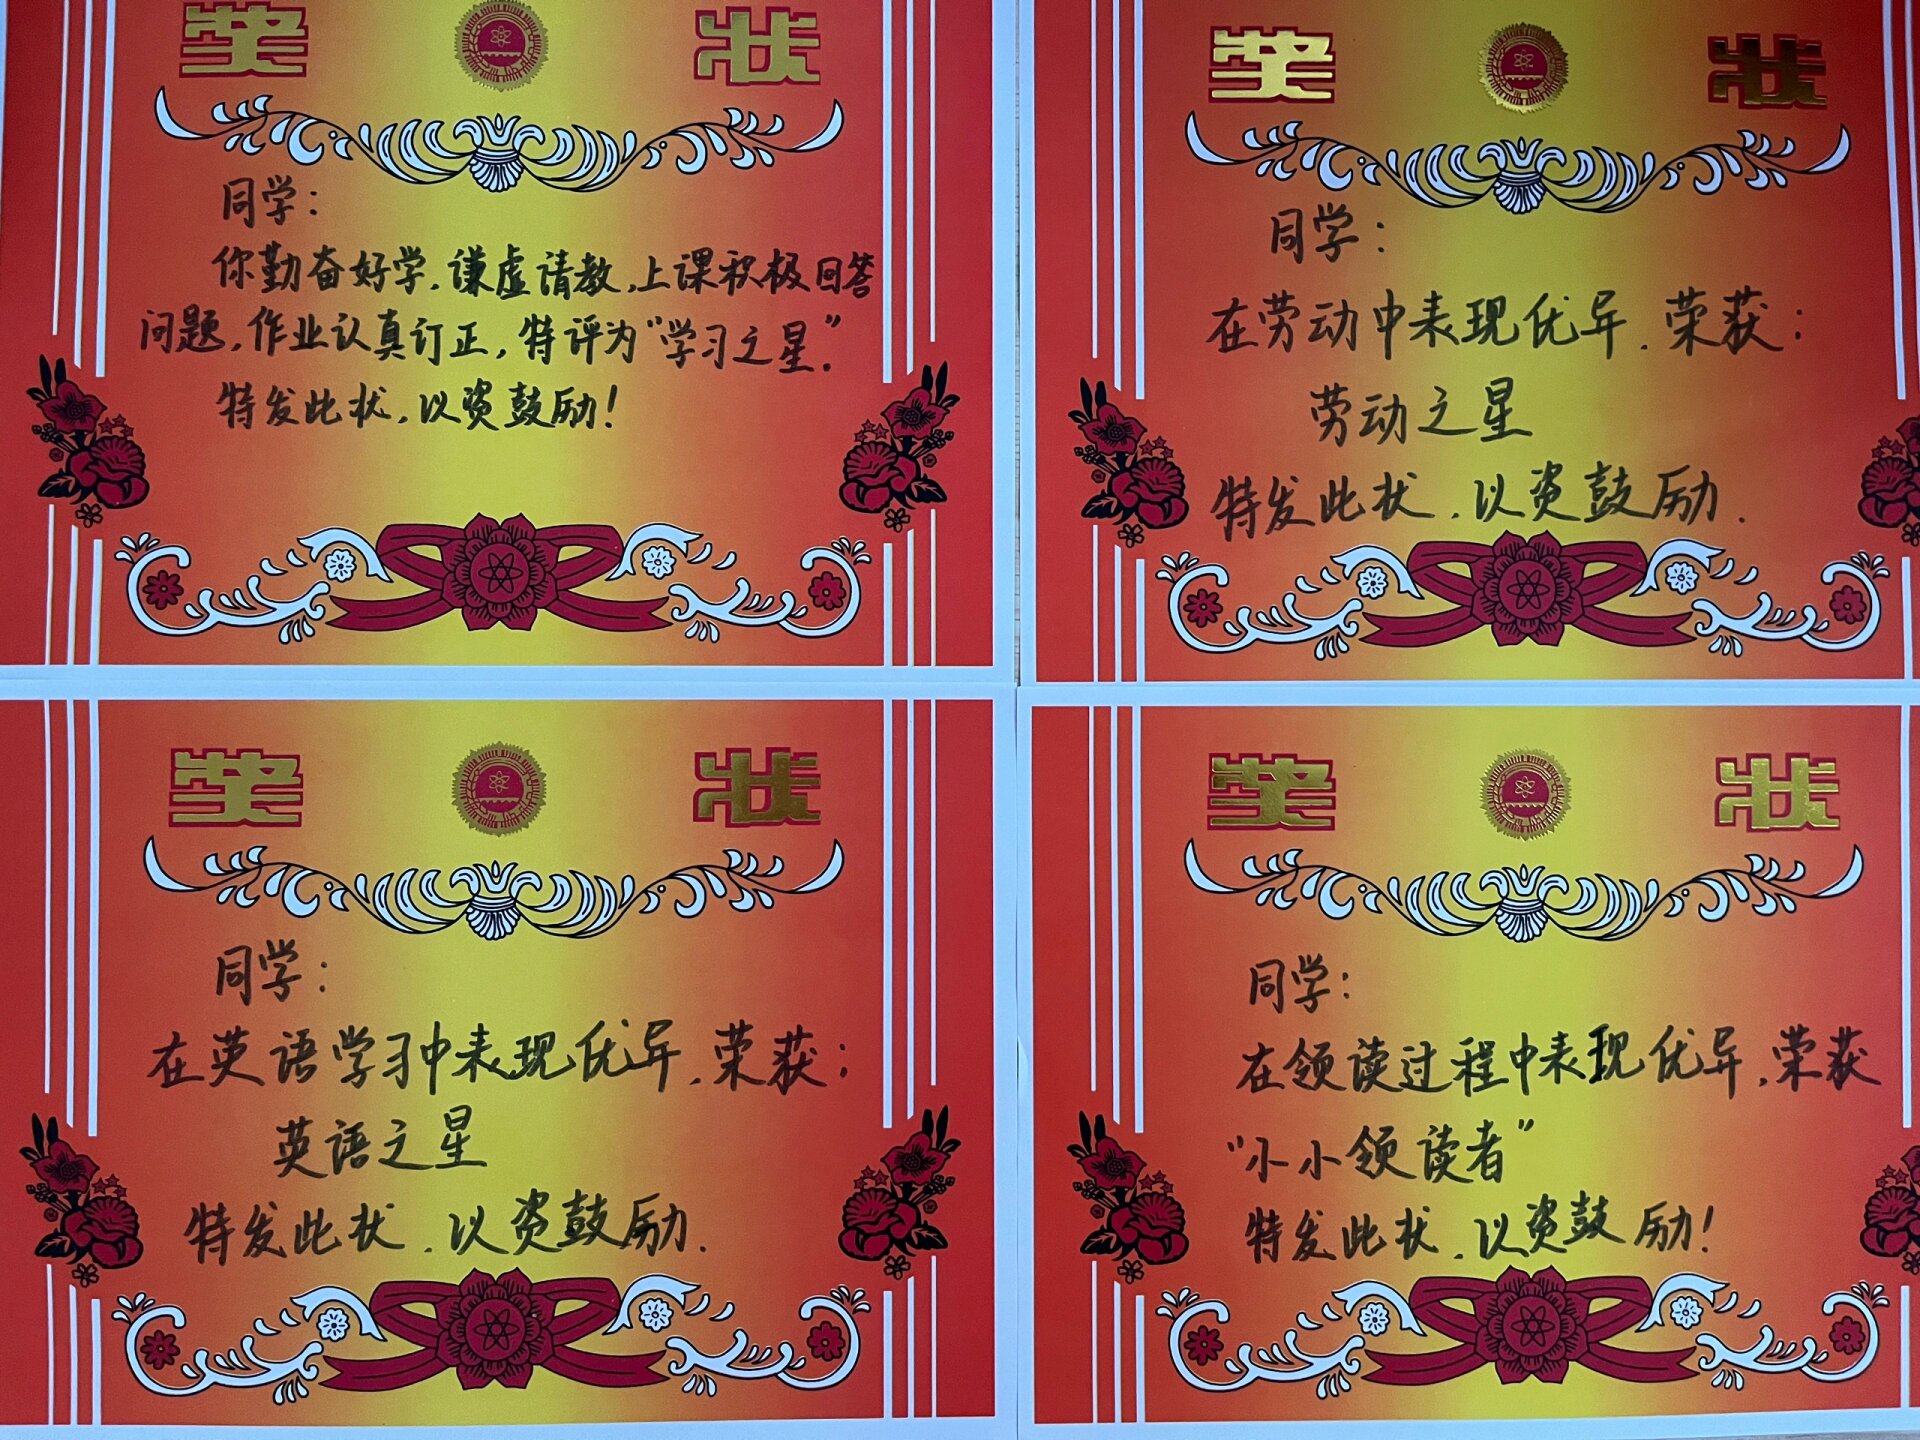 奖 状
同学：
你勤奋好学，谦虚请教，上课积极回答
问题，作业认真订正，特评为“学习之星”。
特发此状，以资鼓励！
奖 状
同学：
在劳动中表现优异，荣获：
劳动之星
特发此状，以资鼓励．
奖 状
同学：
在英语学习中表现优异，荣获：
英语之星
特发此状，以资鼓励．
奖 状
同学：
在领读过程中表现优异，荣获
“小小领读者”
特发此状，以资鼓励！